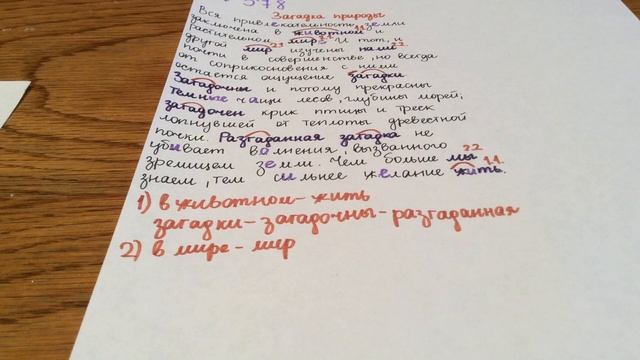 578
Загадка природы
Вся привлекательность земли
заключена в животном 1.1.
растительном мире 2.2. И тот, и
другой мир 2.2. изучены нами 2.2.
почти в совершенстве, но всегда
от соприкосновения с ними
остается ощущение загадки
Загадочны и потому прекрасны
темные чащи лесов, глубины морей,
загадочен крик птицы и треск
лопнувшей от теплоты древесной
почки. Разгаданная загадка не
убивает волнения, вызванного
зрелищем земли. Чем больше мы 2.2.
знаем, тем сильнее желание жить. 1.1.
1) в животном - жить
загадки - загадочны - разгаданная
2) в мире - мир